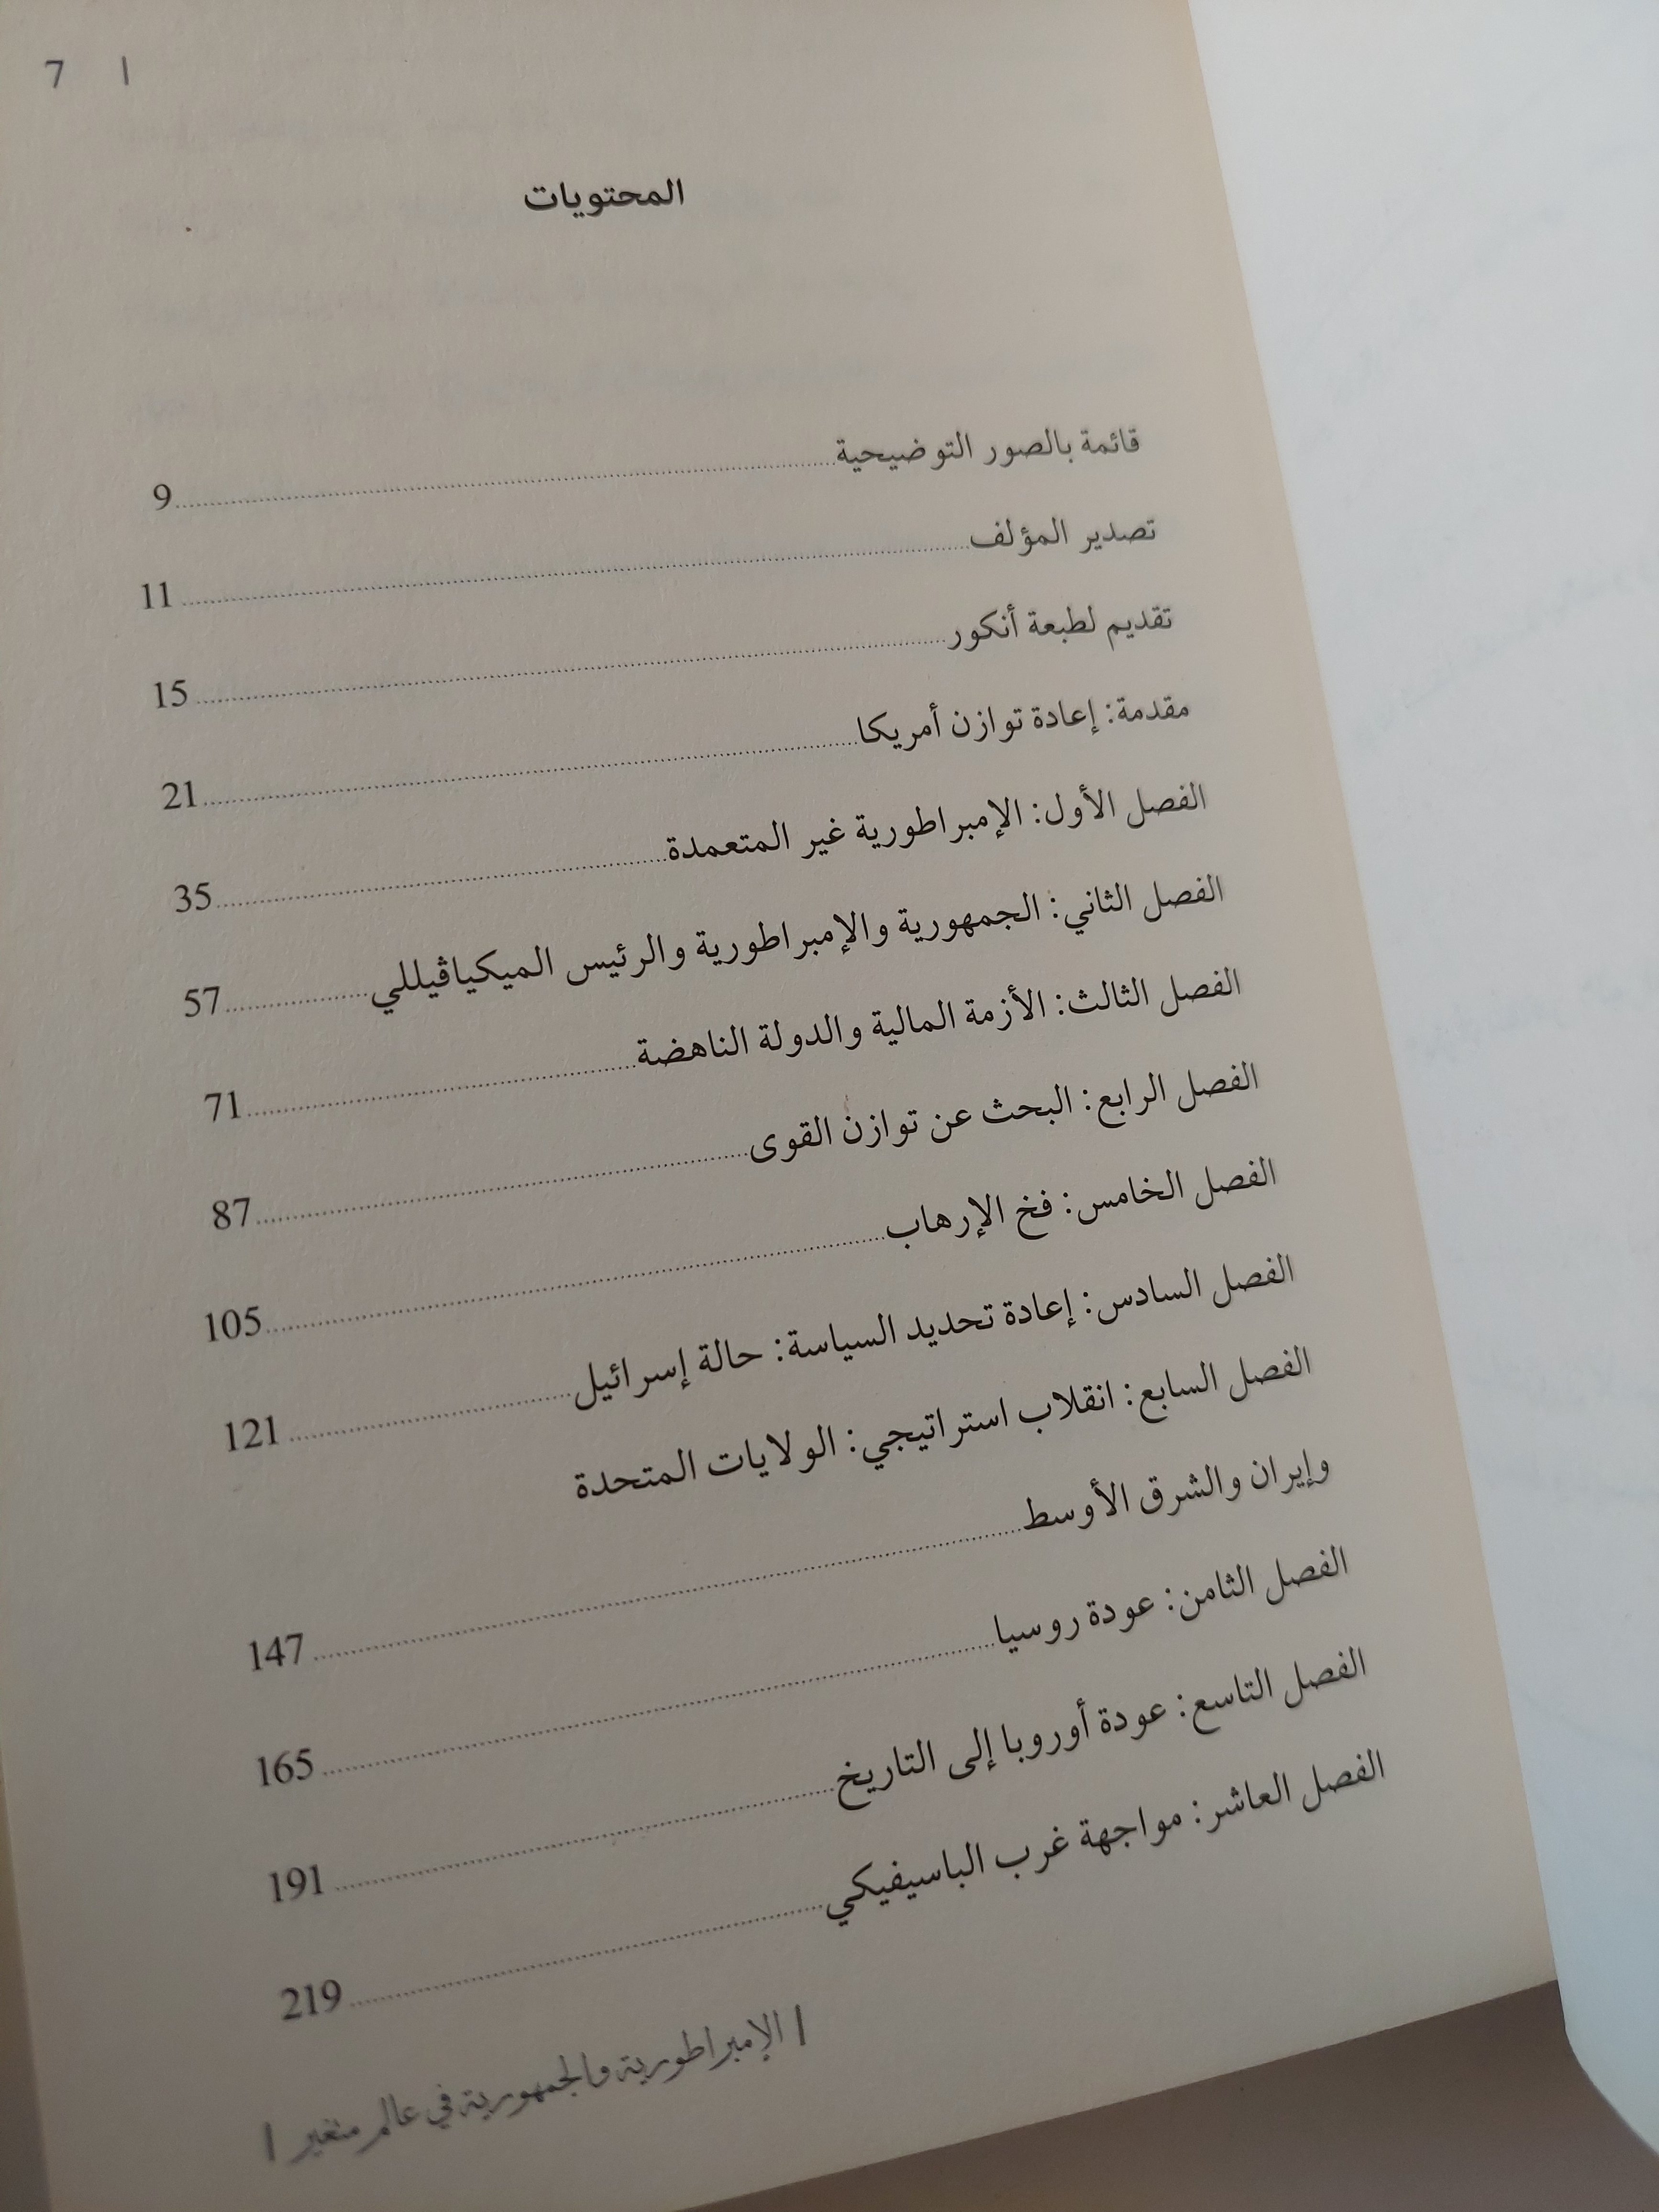 7 |
المحتويات
قائمة بالصور التوضيحية 9
تصدير المؤلف 11
تقديم لطبعة أنكور 15
مقدمة: إعادة توازن أمريكا 21
الفصل الأول: الإمبراطورية غير المتعمدة 35
الفصل الثاني: الجمهورية والإمبراطورية والرئيس الميكياڤيللي 57
الفصل الثالث: الأزمة المالية والدولة الناهضة 71
الفصل الرابع: البحث عن توازن القوى 87
الفصل الخامس: فخ الإرهاب 105
الفصل السادس: إعادة تحديد السياسة: حالة إسرائيل 121
الفصل السابع: انقلاب استراتيجي: الولايات المتحدة
وإيران والشرق الأوسط 147
الفصل الثامن: عودة روسيا 165
الفصل التاسع: عودة أوروبا إلى التاريخ 191
الفصل العاشر: مواجهة غرب الباسيفيكي 219
| الإمبراطورية والجمهورية في عالم متغير |